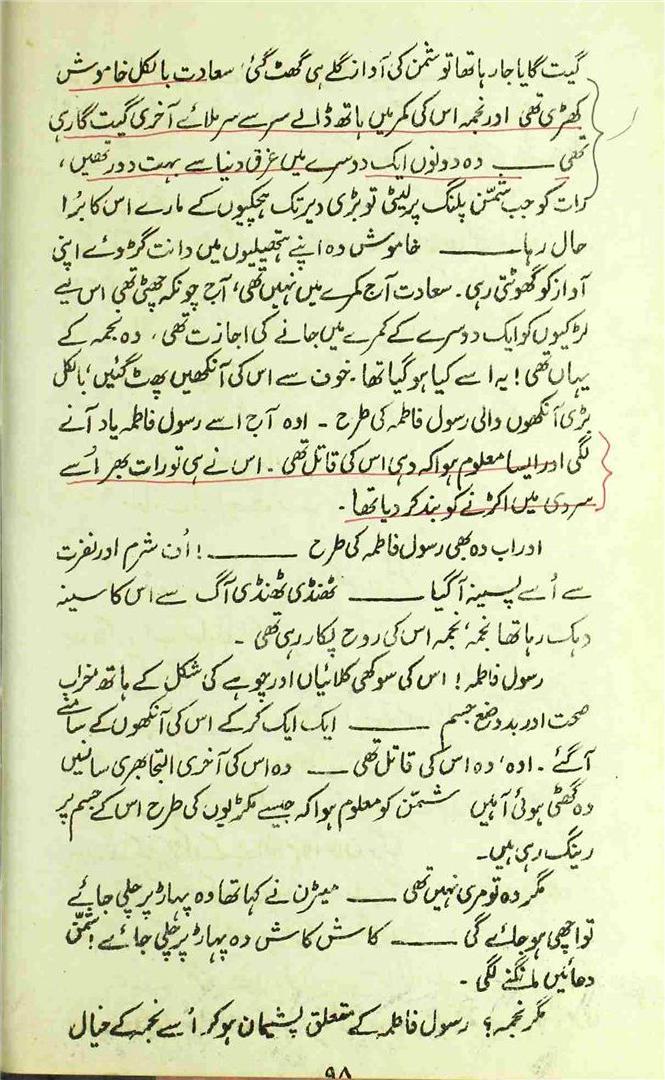 گیت گایا جا رہا تھا تو شمن کی آواز گلے ہی گھٹ گئی، سعادت بالکل خاموش
کھڑی تھی اور نجمہ اس کی کمر میں ہاتھ ڈالے سر سے سر ملائے آخری گیت گا رہی
تھی ــــ وہ دونوں ایک دوسرے میں غرق دنیا سے بہت دور تھیں،
رات کو جب شمّن پلنگ پر لیٹی تو بڑی دیر تک ہچکیوں کے مارے اس کا بُرا
حال رہا ــــ خاموش وہ اپنے ہتھیلیوں میں دانت گڑوئے اپنی
آواز کو گھونٹتی رہی۔ سعادت آج کمرے میں نہیں تھی، آج چونکہ چھٹی تھی اس لیے
لڑکیوں کو ایک دوسرے کے کمرے میں جانے کی اجازت تھی، وہ نجمہ کے
یہاں تھی! یہ اسے کیا ہو گیا تھا۔ خوف سے اس کی آنکھیں پھٹ گئیں، بالکل
بڑی آنکھوں والی رسول فاطمہ کی طرح۔ اوہ آج اسے رسول فاطمہ یاد آنے
لگی اور ایسا معلوم ہوا کہ وہی اس کی قاتل تھی۔ اس نے ہی تو رات بھر اُسے
سردی میں اکڑنے کو بند کر دیا تھا۔
اور اب وہ بھی رسول فاطمہ کی طرح ــــ! اُن شرم اور نفرت
سے اُسے پسینہ آ گیا ــــ ٹھنڈی ٹھنڈی آگ سے اس کا سینہ
دہک رہا تھا نجمہ، نجمہ اس کی روح پکار رہی تھی۔
رسول فاطمہ! اس کی سوکھی کلائیاں اور چوہے کی شکل کے ہاتھ خراب
صحت اور بد وضع جسم ــــ ایک ایک کر کے اس کی آنکھوں کے سامنے
آ گئے۔ اوہ، وہ اس کی قاتل تھی ــــ وہ اس کی آخری التجا بھری سانسیں
وہ گھٹی ہوئی آہیں شمّن کو معلوم ہوا کہ جیسے مکڑیوں کی طرح اس کے جسم پر
رینگ رہی ہیں۔
مگر وہ تو مری نہیں تھی ــــ میٹرن نے کہا تھا وہ پہاڑ پر چلی جائے
تو اچھی ہو جائے گی ــــ کاش کاش وہ پہاڑ پر چلی جائے! شمّن
دعائیں مانگنے لگی۔
مگر نجمہ؟ رسول فاطمہ کے متعلق پشیمان ہو کر اُسے نجمہ کے خیال
۹۸